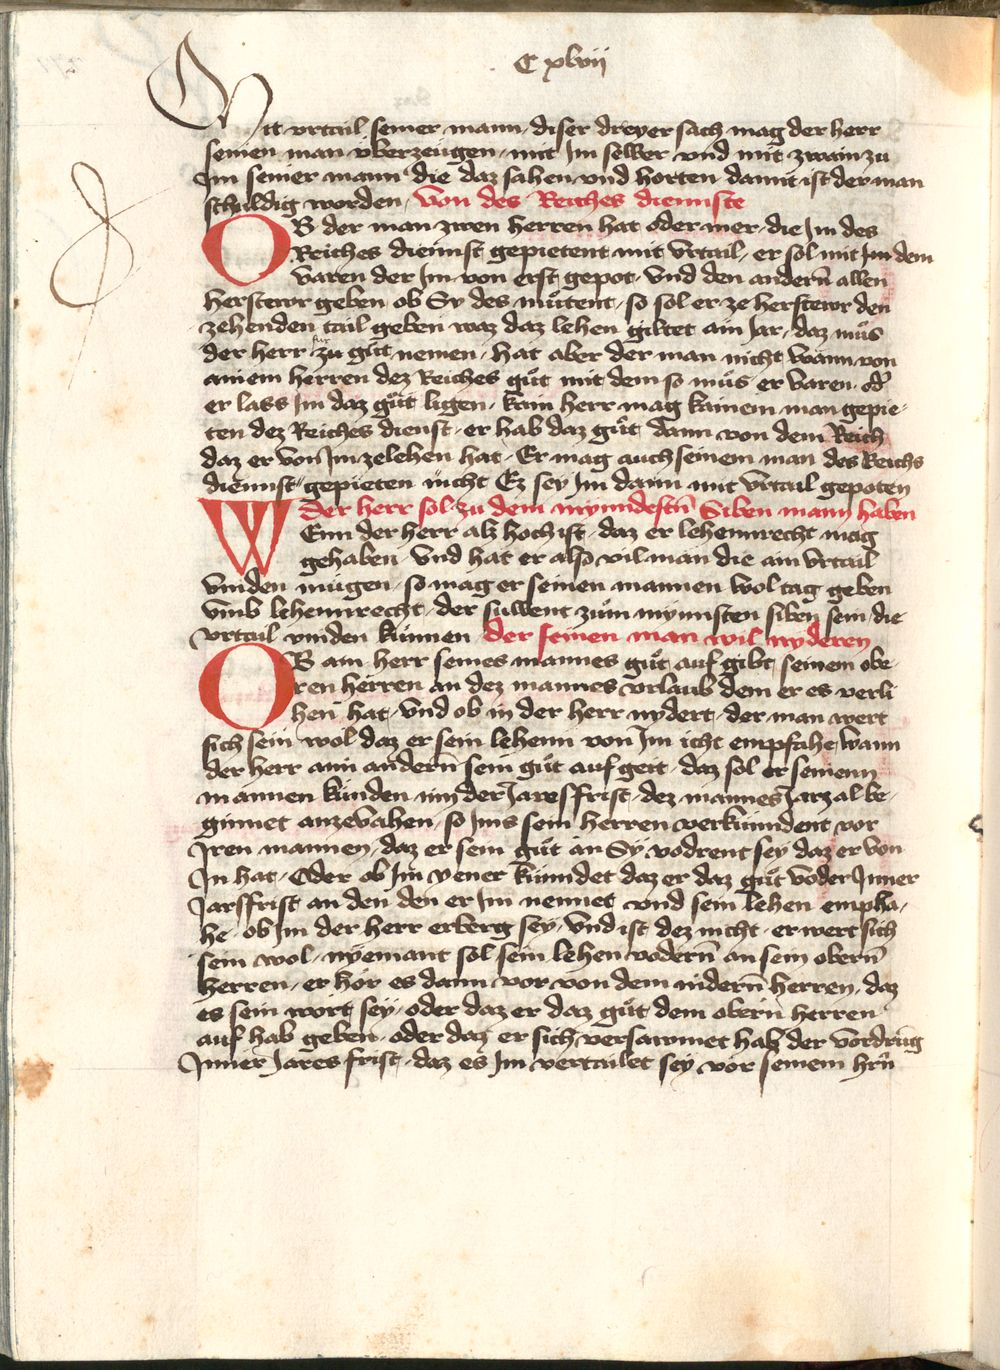 C xlvii
Mit vrtail seiner mann, diser dreyer sach mag der herr
seinen man v̈berzeugen, mit Im selber vnd mit zwain zu
Im seiner mann die daz sahen vnd horten damit ist der man
schuldig worden, Von des Reiches diennste
OB der man zwen herren hat oder mer, die Im des
Reiches diennst gepietent mit Vrtail, er sol mit Im dem
Varen der Im von erst gepot, Vnd den andern̄ allen
herstewr geben ob Sy des mu̇tent, so sol er ze herstewr den
zehenden tail geben waz daz lehen giltet ain Jar, daz mu̇s
der herr fur zu gu̇t nemen, hat aber der man nicht wann von
ainem herren dez Reiches gu̇t mit dem so mu̇s er Varen, od̓
er lass Im daz gu̇t ligen, kain herr mag kainem man gepie-
ten dez Reiches dienst, er hab daz gu̇t dann von dem Reich
daz er von Im ze lehen hat, Er mag auch seinem man des Reichs
diennst gepieten nicht Ez sey Im dann mit Vrtail gepoten
Der herr sol zu dem mynndestn̄ Siben mann haben
WEnn der herr alz hoch ist, daz er lehennrecht mag
gehaben, Vnd hat er also vil man die ain Vrtail
Vinden mügen, so mag er seinen mannen wol tag geben
Vmb lehennrecht, der sullent zum mynnsten siben sein, die
Vrtail vinden kunnen, der seinen man wil nyderen
OB ain herr seines mannes gu̇t auf gibt seinem obe-
ren herren an dez mannes vrlaub dem er es verli
hen hat, Vnd ob in der herr nydert, der man wert
sich sein wol daz er sein lehenn von Im icht empfahe, wann
der herr ain andern̄ sein gu̇t auf geit, daz sol er seinenn
mannen künden inn der Jaresfrist, dez mannes Jarzal be-
ginnet anzevahen, so Ims sein herren verkünndent vor
Iren mannen, daz er sein gut an Sy vodrent sey daz er von
In hat, Oder ob Im yener künndet daz er daz gu̇t voder Inner
Jarsfrist an den den er Im nennet vnd sein lehen empha,
he, ob Im der herr erberg sey, Vnd ist dez nicht, er wert sich
sein wol, nyemant sol sein lehen vodern̄ an sein obern̄
herren, er hör es dann vor von dem nidern̄ herren, daz
es sein wort sey, oder daz er daz gu̇t dem obern herren
auf hab geben, oder daz er sich versawmet hab der vordrūg
Inner Jares frist, daz es Im vertailet sey vor seinem hrn̄